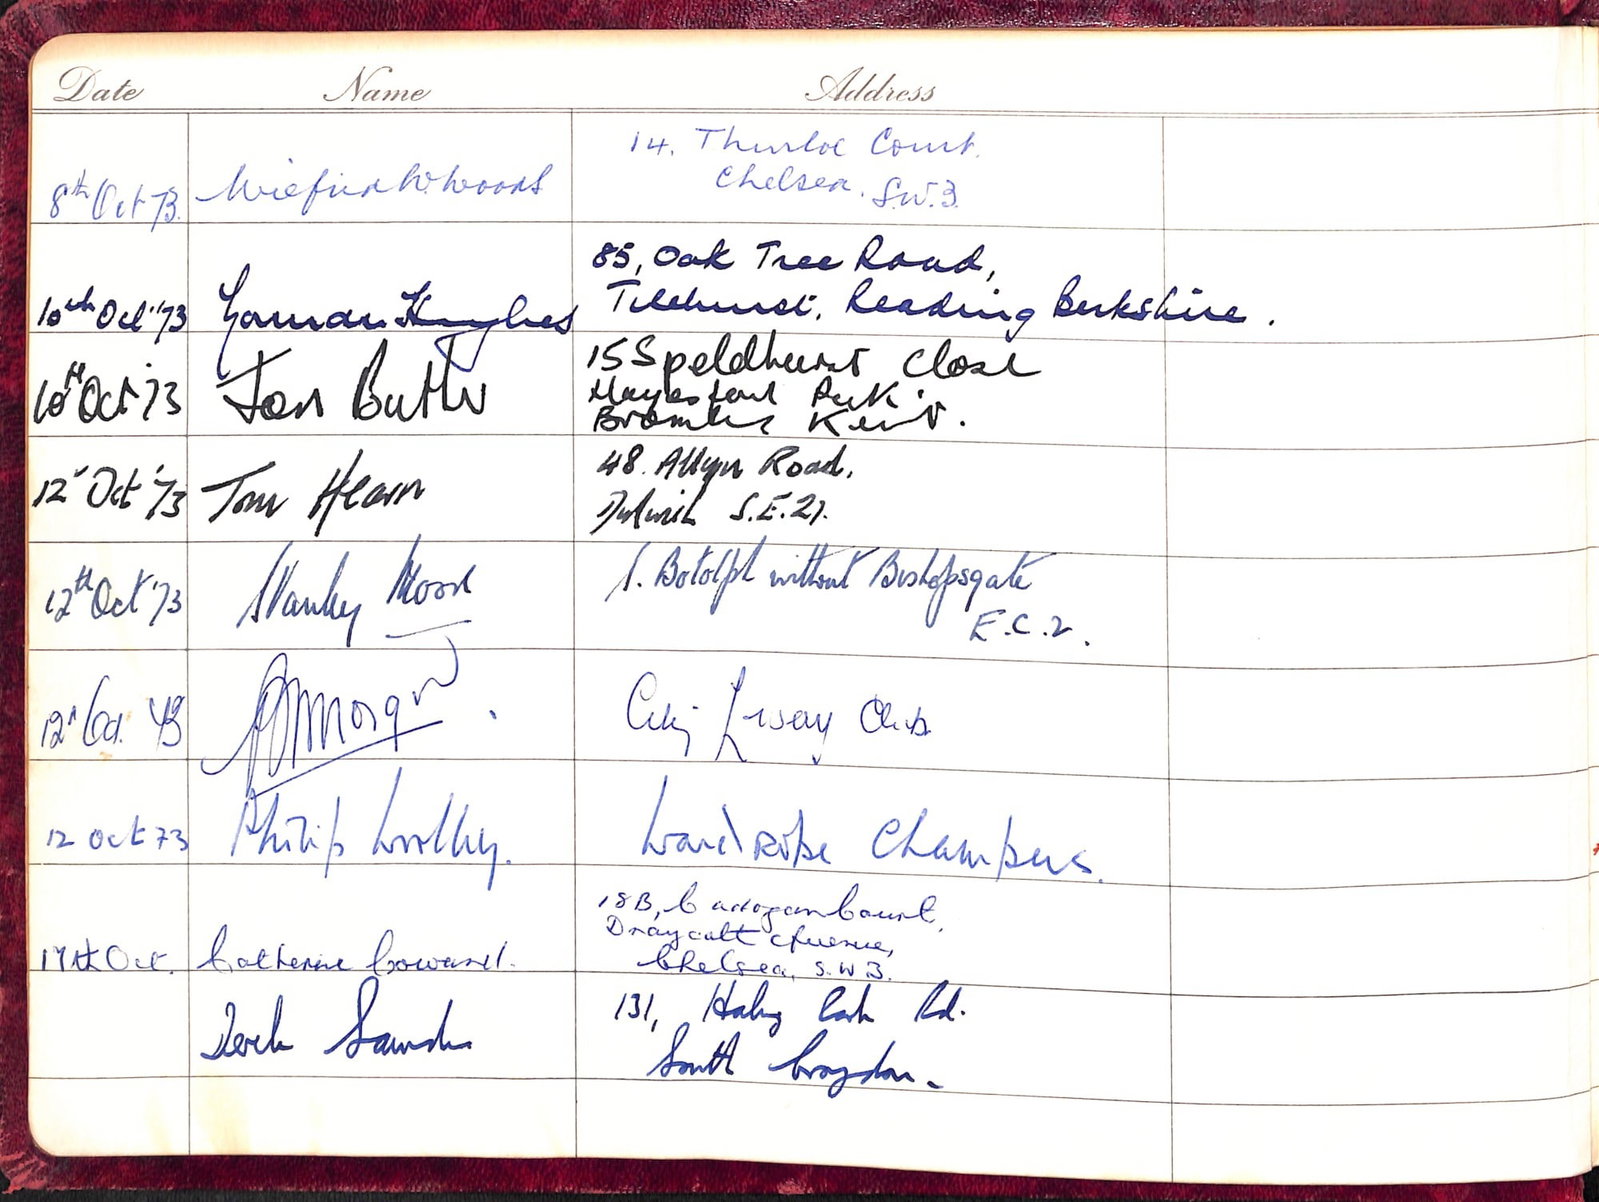 Date Name Address
14. Thurloe Court.
Chelsea. S.W.3
8th Oct 73. W. Woods
85, Oak Tree Road,
10th Oct '73 Hughes Tilehurst, Reading Berkshire.
15 Speldhurst Close
10th Oct '73 Butler Park
Bromley Kent.
48. Alleyn Road,
12th Oct '73 Tom Hearn
Dulwich S.E.21.
12th Oct '73 Stanley Moore S. Botolph without Bishopsgate
E.C.2.
12th Oct. 73 Morgan City Livery Club
12 Oct 73 Philip Woolley. Wardrobe Chambers.
18B, Cadogan Court,
Draycott Avenue,
17th Oct. Catherine Coward. Chelsea, S.W.3.
131, Haling Park Rd.
Derek Saunders
South Croydon.